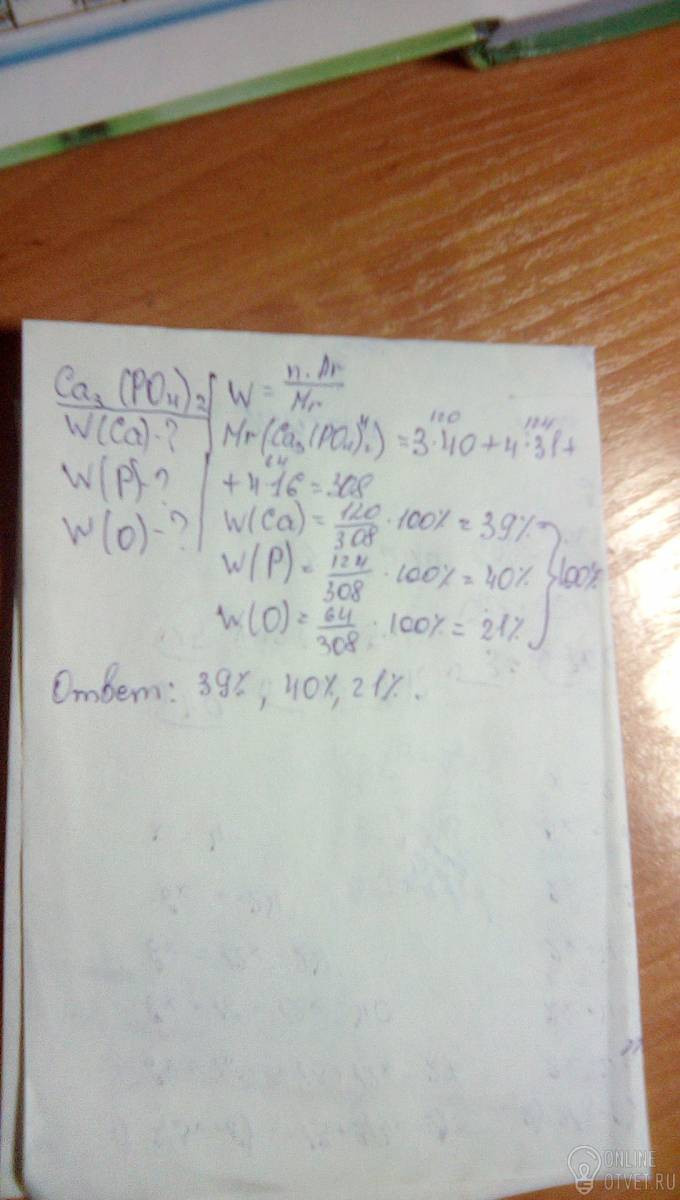 Ca₃(PO₄)₂
W(Ca)-?
W(P)-?
W(O)-?
W = n·Ar/Mr
120 124
Mr(Ca₃(PO₄)₂) = 3·40+4·31+
64
+4·16=308
W(Ca) = 120/308 · 100% = 39%
W(P) = 124/308 · 100% = 40%
W(O) = 64/308 · 100% = 21%
100%
Ответ: 39%, 40%, 21%.
ONLINE
OTVET.RU